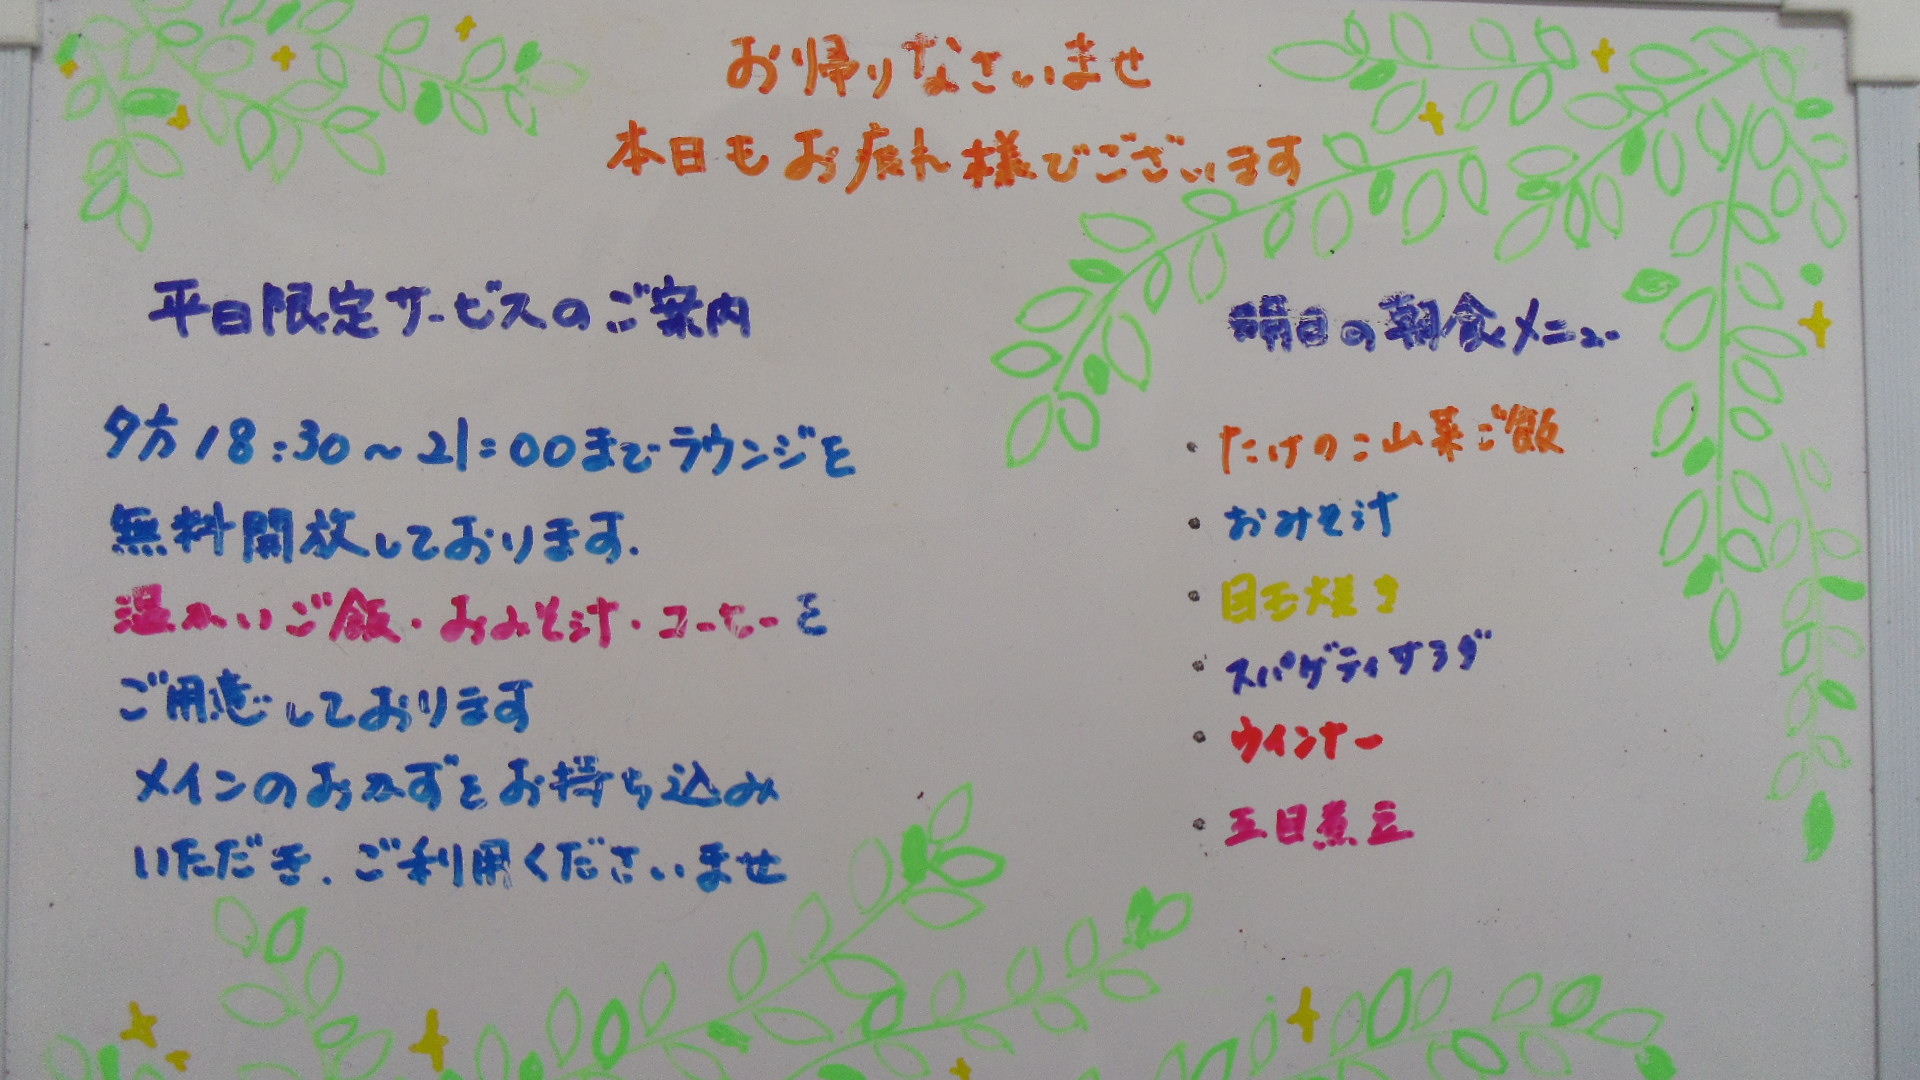 お帰りなさいませ
本日もお疲れ様でございます
平日限定サービスのご案内
夕方18:30～21:00までラウンジを
無料開放しております.
温かいご飯・おみそ汁・コーヒーを
ご用意しております
メインのおかずをお持ち込み
いただき、ご利用くださいませ
明日の朝食メニュー
・たけのこ山菜ご飯
・おみそ汁
・目玉焼き
・スパゲティサラダ
・ウインナー
・五目煮豆